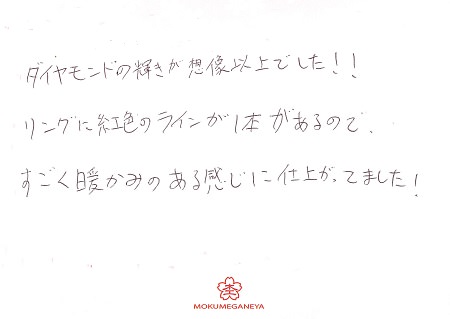 ダイヤモンドの輝きが想像以上でした！！
リングに紅色のラインが1本があるので、
すごく暖かみのある感じに仕上がってました！
MOKUMEGANEYA